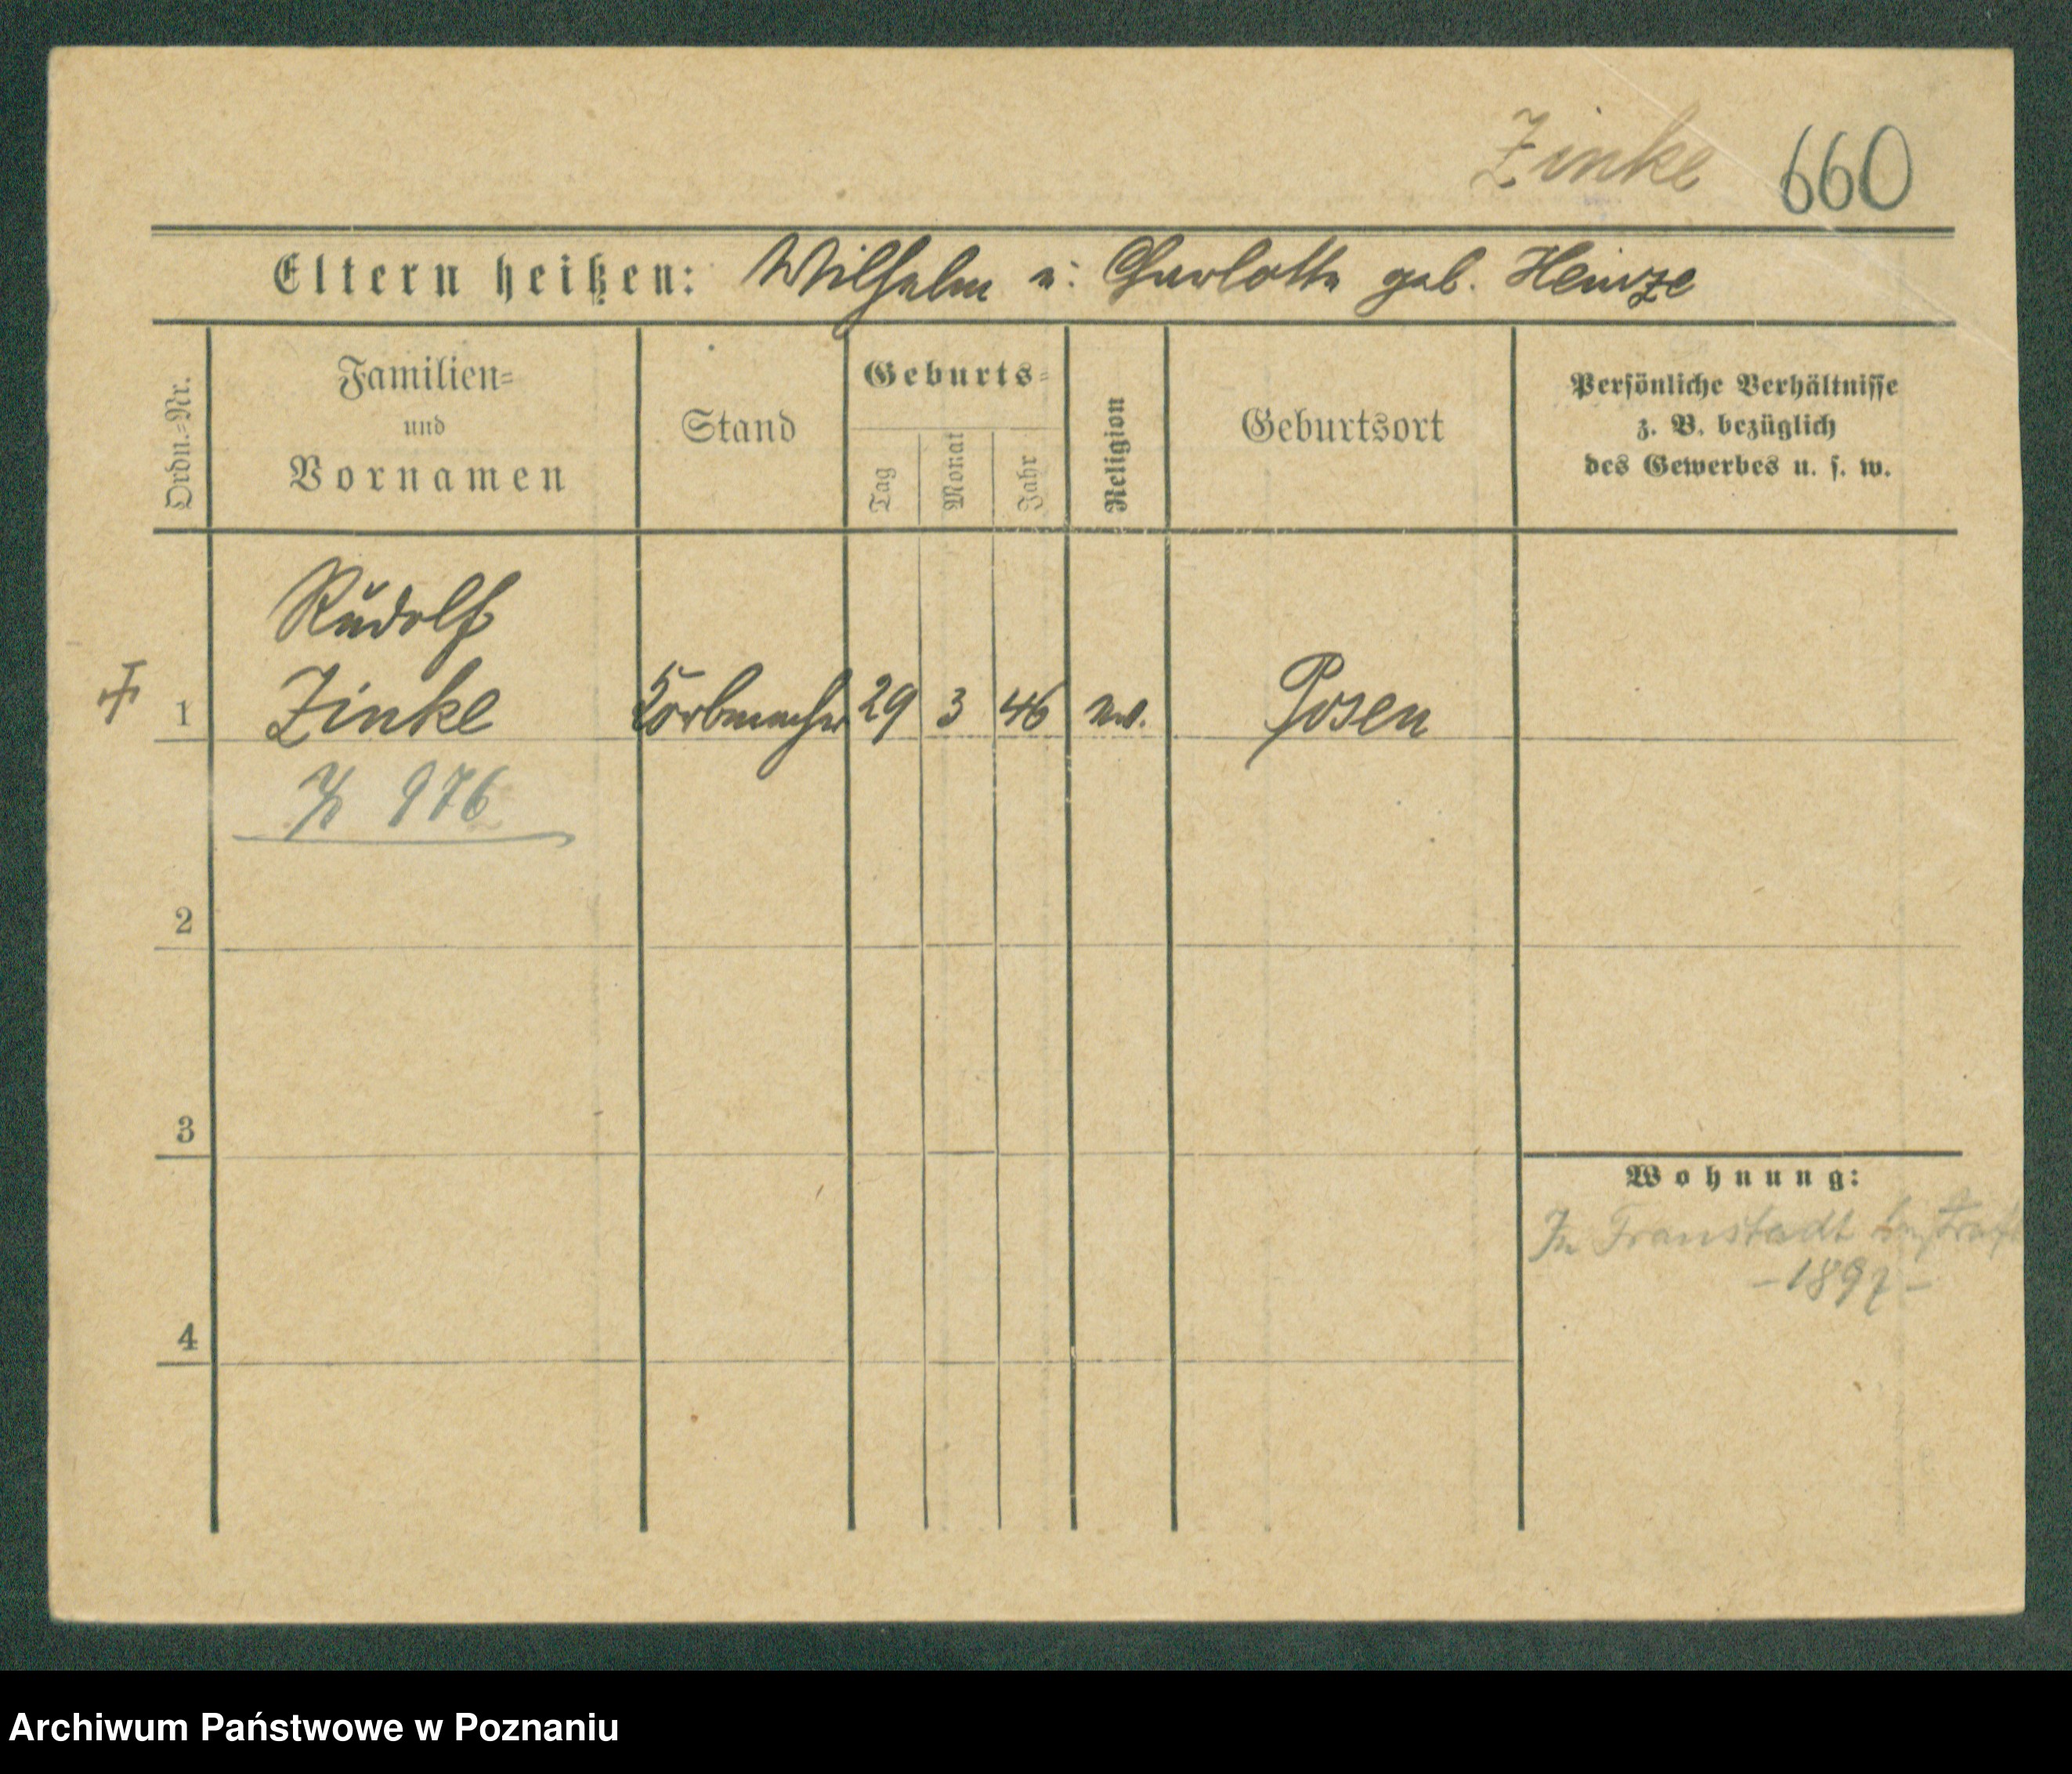 Zinke 660
Eltern heißen: Wilhelm u. Charlotte geb. Heinze
Ordn.=Nr.
Familien=
und
Vornamen
Stand
Geburts=
Tag
Monat
Jahr
Religion
Geburtsort
Persönliche Verhältnisse
z. B. bezüglich
des Gewerbes u. s. w.
Rudolf
1 Zinke Korbmacher 29 3 46 ev. Posen
976
2
3
Wohnung:
In Fraustadt bestraft
-1897-
4
Archiwum Państwowe w Poznaniu